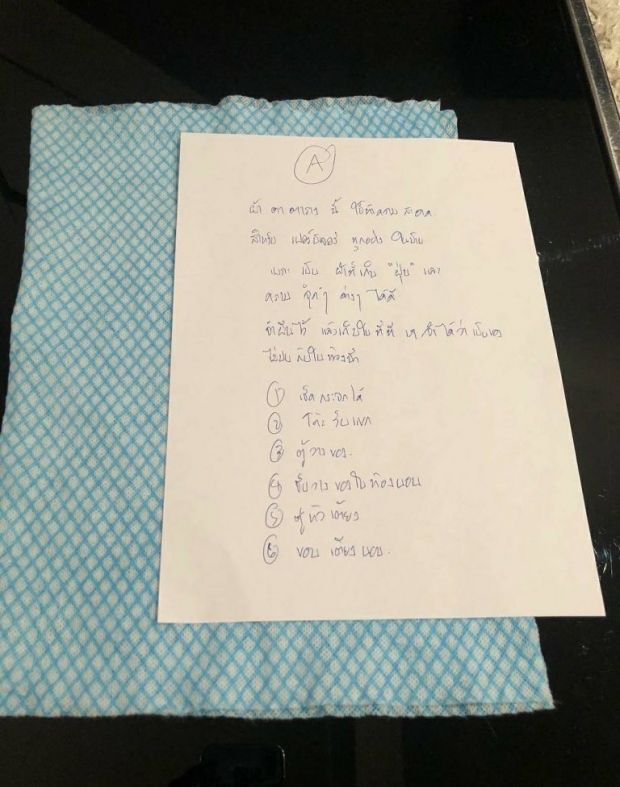 A
ผ้า ตาตาราง นี้ ใช้ทำความ สะอาด
สำหรับ เฟอร์นิเจอร์ ทุกอย่าง ในบ้าน
เพราะ เป็น ผ้าที่เก็บ "ฝุ่น" และ
คราบ จุดๆ ต่างๆ ได้ดี
แล้วเก็บใน ที่ที่ เราจำได้ว่า
ไม่ปน กับใน ห้องน้ำ
① เช็ด กระจกได้
② โต๊ะ รับแขก
③ ตู้วางของ.
④ ชั้นวาง ของใน ห้องนอน
⑤ ตู้ หัว เตียง
⑥ ขอบ เตียง นอน.